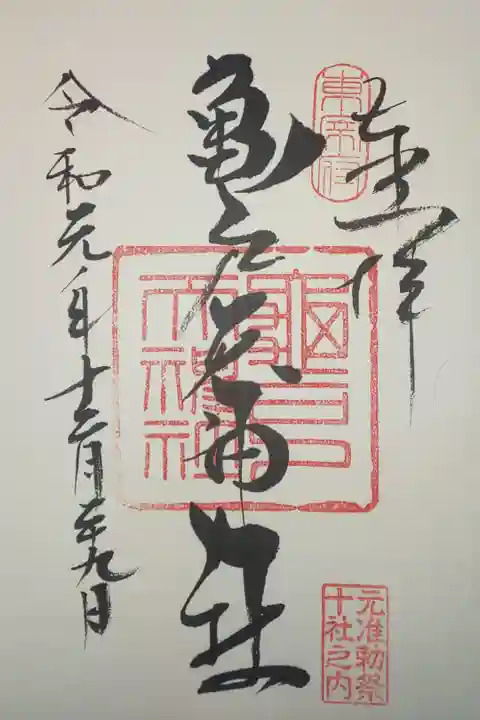 奉拝
東宰府
亀戸天神社
亀戸天神社
元准勅祭
十社之内
令和元年十二月廿九日